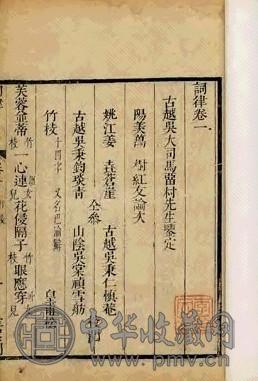 詞律卷一
古越吳大司馬留村先生鑒定
陽羨萬 樹紅友論次
姚江姜 垚蒼崖 古越吳秉仁慎菴
仝參
古越吳秉鈞琰青 山陰吳棠禎雪舫
竹枝 十四字 又名巴渝辭 皇甫松
芙蓉並蒂竹枝一心連女兒花侵隔子竹枝眼應穿女兒
中华收藏网
www.pmv.cn